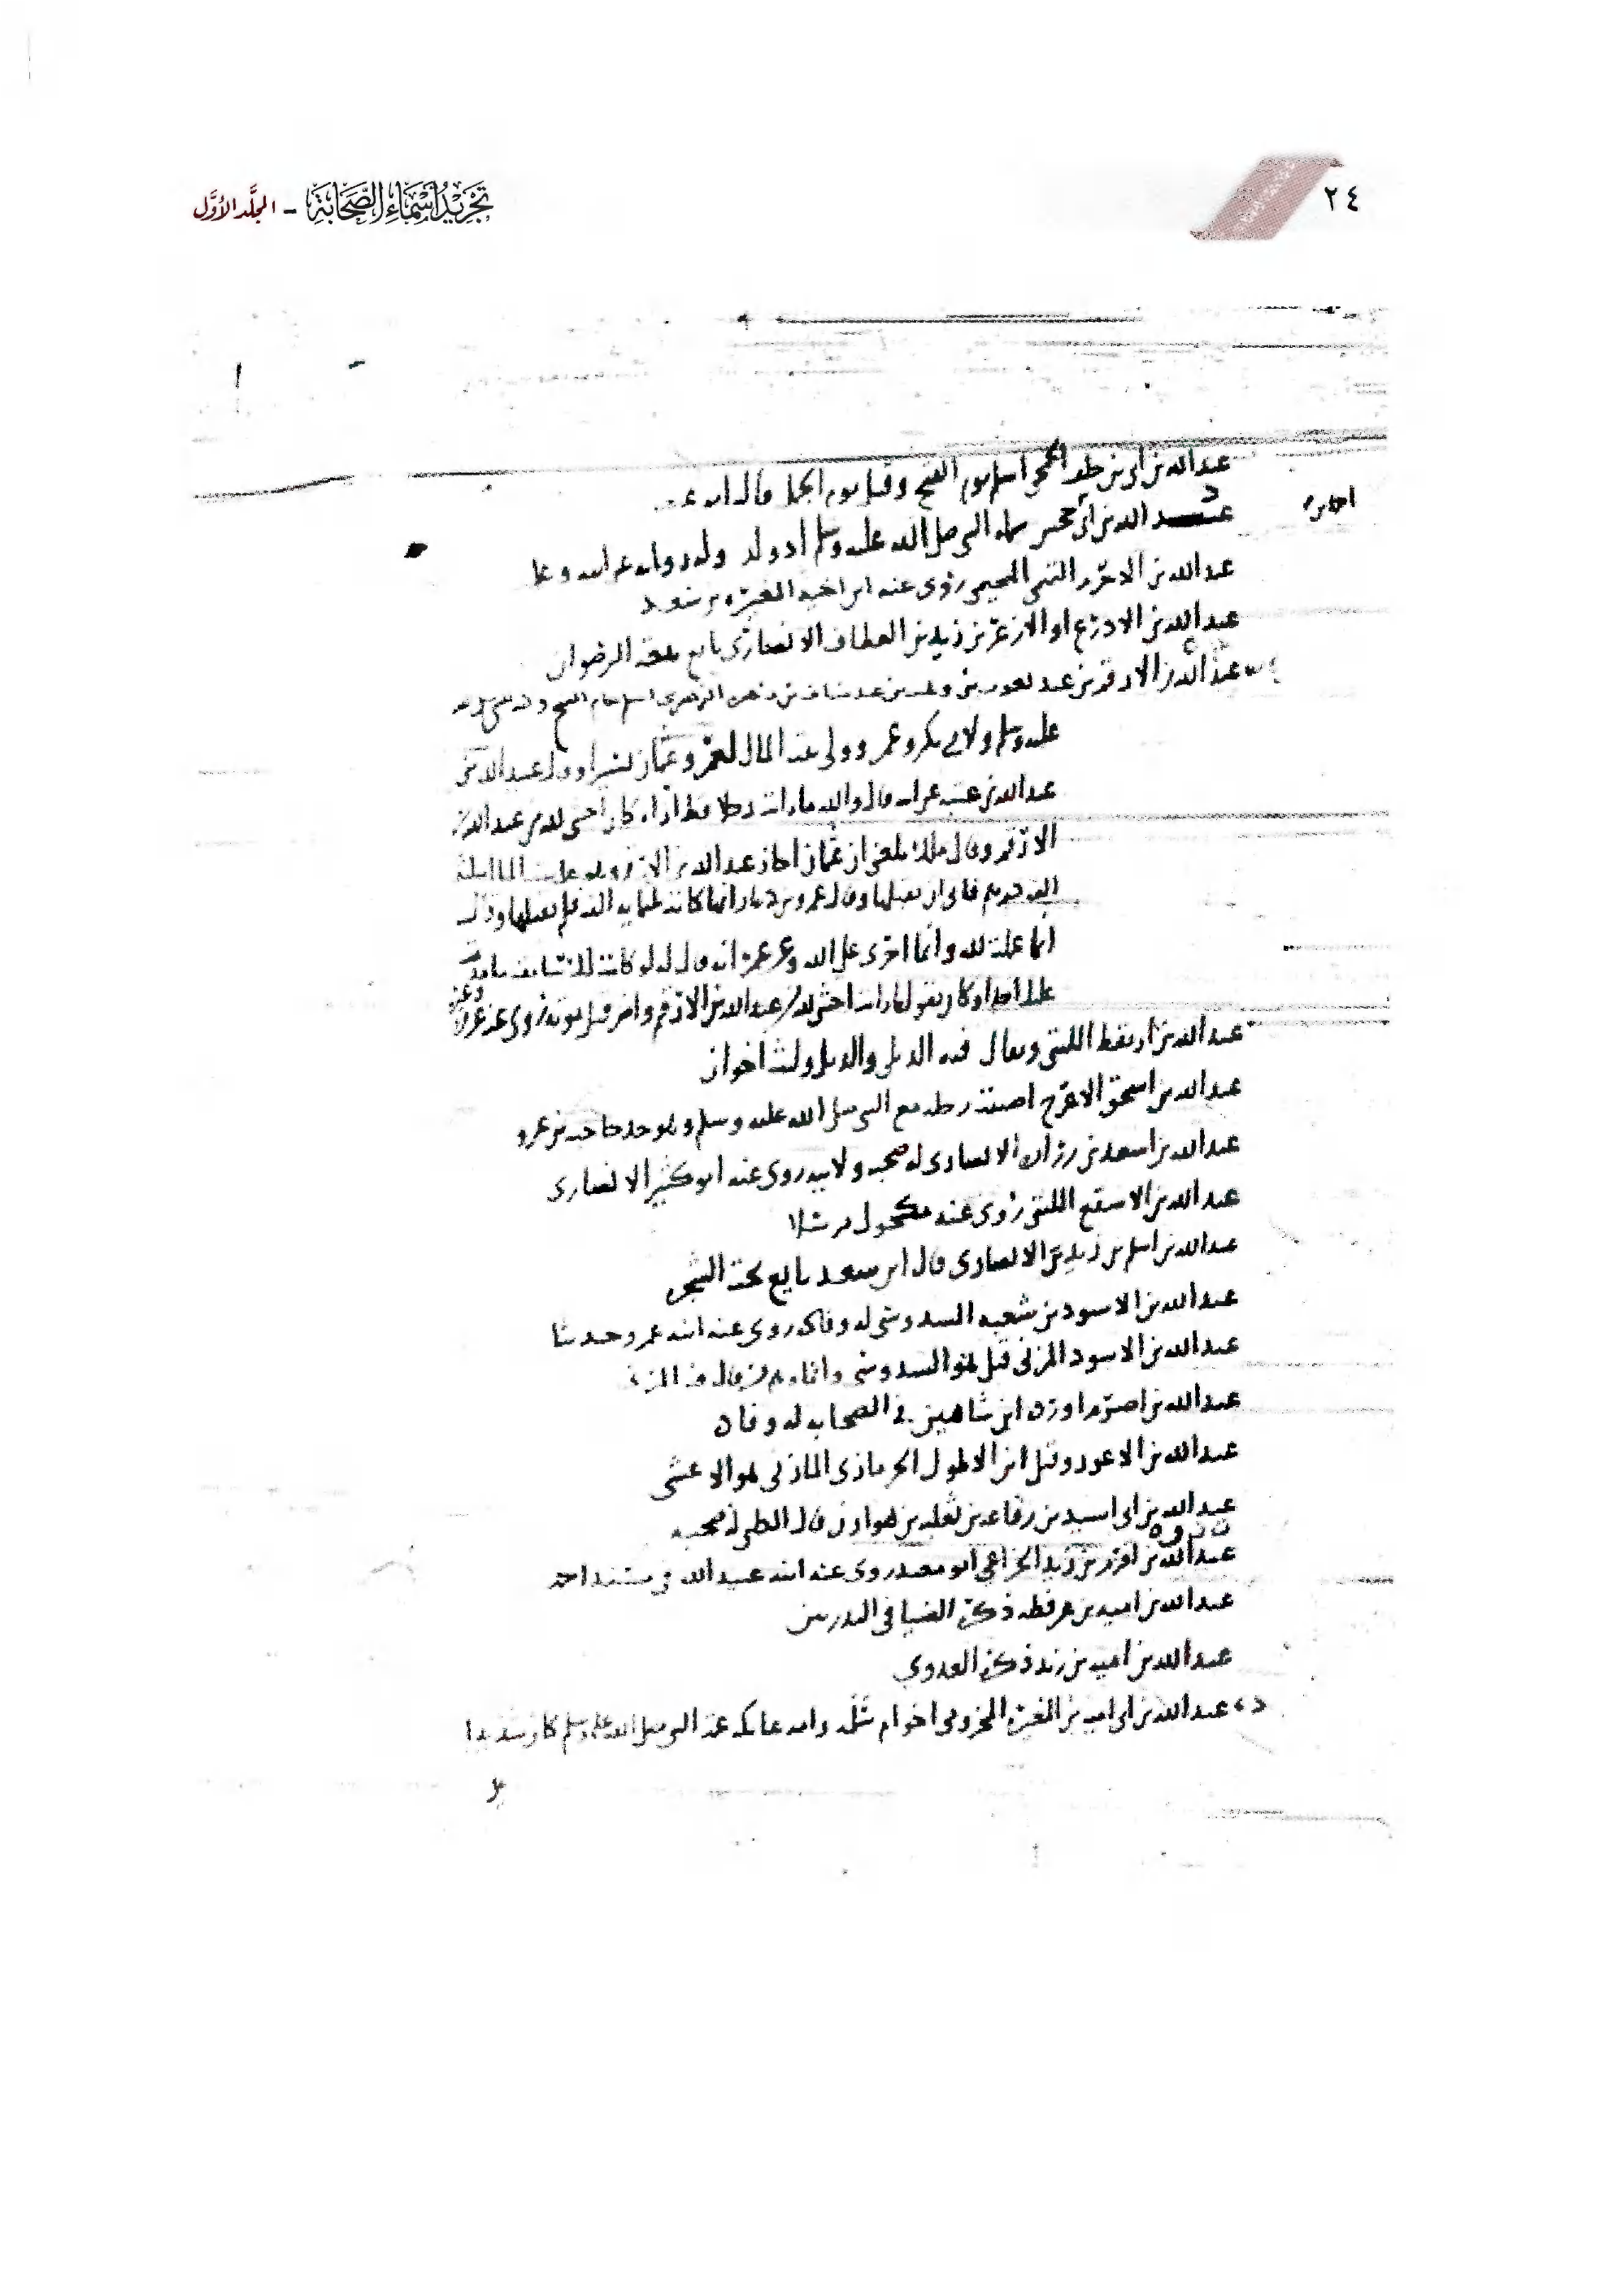 ٢٤
تجريد أسماء الصحابة - المجلد الأول
عبد الله بن ابي بن خلف الجمحي اسلم يوم الفتح وقتل يوم الجمل قاله ابن
عبد الله بن
عبد الله بن
عبد الله بن الادرع او الازعر بن زيد بن العطاف الانصاري بايع بيعة الرضوان
عبد الله بن الارقم بن عبد يغوث بن وهب بن عبد مناف بن زهره الزهري اسلم عام الفتح وكتب
عليه وسلم ولابي بكر وعمر وولي بيت المال لعمر وعثمان يسيرا
عبد الله بن عتبه عن ابيه قال والله ما رايت رجلا قط اراه كان اخشى لله من عبد الله بن
الارقم وقال ملك بلغني ان عثمان اجاز عبد الله بن الارقم وهو على بيت المال بثلثين
الف درهم فابى ان يقبلها وقال عمرو بن دينار انها كانت ثلثمايه الف فلم يقبلها وقال
انما عملت لله وانما اجري على الله وعن عمر انه قال له لو كانت لك سابقه ما قدمت
عليك احدا وكان يقول ما رايت اخشى لله من عبد الله بن الارقم واضر قبل موته روى عنه عروه
عبد الله بن اريقط الليثي ويقال فيه الديلي والديل وليث اخوان
عبد الله بن اسحق الاعرج اصيبت رجله مع النبي صلى الله عليه وسلم وهو جد حاجب بن عمرو
عبد الله بن اسعد بن زراره الانصاري له صحبه ولابيه روى عنه ابو كثير الانصاري
عبد الله بن الاسقع الليثي روى عنه مكحول مرسلا
عبد الله بن اسلم بن زيد الانصاري قال ابن سعد بايع تحت الشجره
عبد الله بن الاسود بن شعبه السدوسي له وفاده روى عنه ابنه عمرو حديثا
عبد الله بن الاسود المزني قيل هو السدوسي وانما وهم من قال فيه المزني
عبد الله بن اصرم اورده ابن شاهين في الصحابه له وفاده
عبد الله بن الاعور وقيل ابن الاطول الحرمازي المازني هو الاعشى
عبد الله بن ابي اسيد بن رفاعه بن ثعلبه بن هوازن قال الكلبي له صحبه
عبد الله بن اقرم بن زيد الخزاعي ابو معبد روى عنه ابنه عبيد الله في مسند احمد
عبد الله بن اميه بن عرفطه ذكره الضيا في البدريين
عبد الله بن اميه بن زيد ذكره العدوي
عبد الله بن ابي اميه بن المغيره المخزومي اخو ام سلمه وامه عاتكه عمة النبي صلى الله عليه وسلم كان شديدا